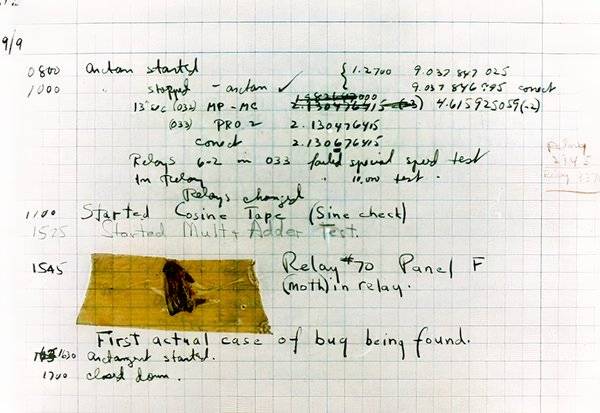 9/9
0800 arctan started { 1.2700 9.037 847 025
1000 " stopped - arctan ✓ 9.037 846 995 correct
13"uc (032) MP - MC 2.130476415 (-3) 4.615925059(-2)
(033) PRO 2 2.130476415
correct 2.130676415
Relays 6-2 in 033 failed special speed test
In Relay " 10,000 test .
Relays changed
1100 Started Cosine Tape (Sine check)
1525 Started Mult + Adder Test.
1545 Relay #70 Panel F
(moth) in relay.
First actual case of bug being found.
1630 arctangent started.
1700 closed down.